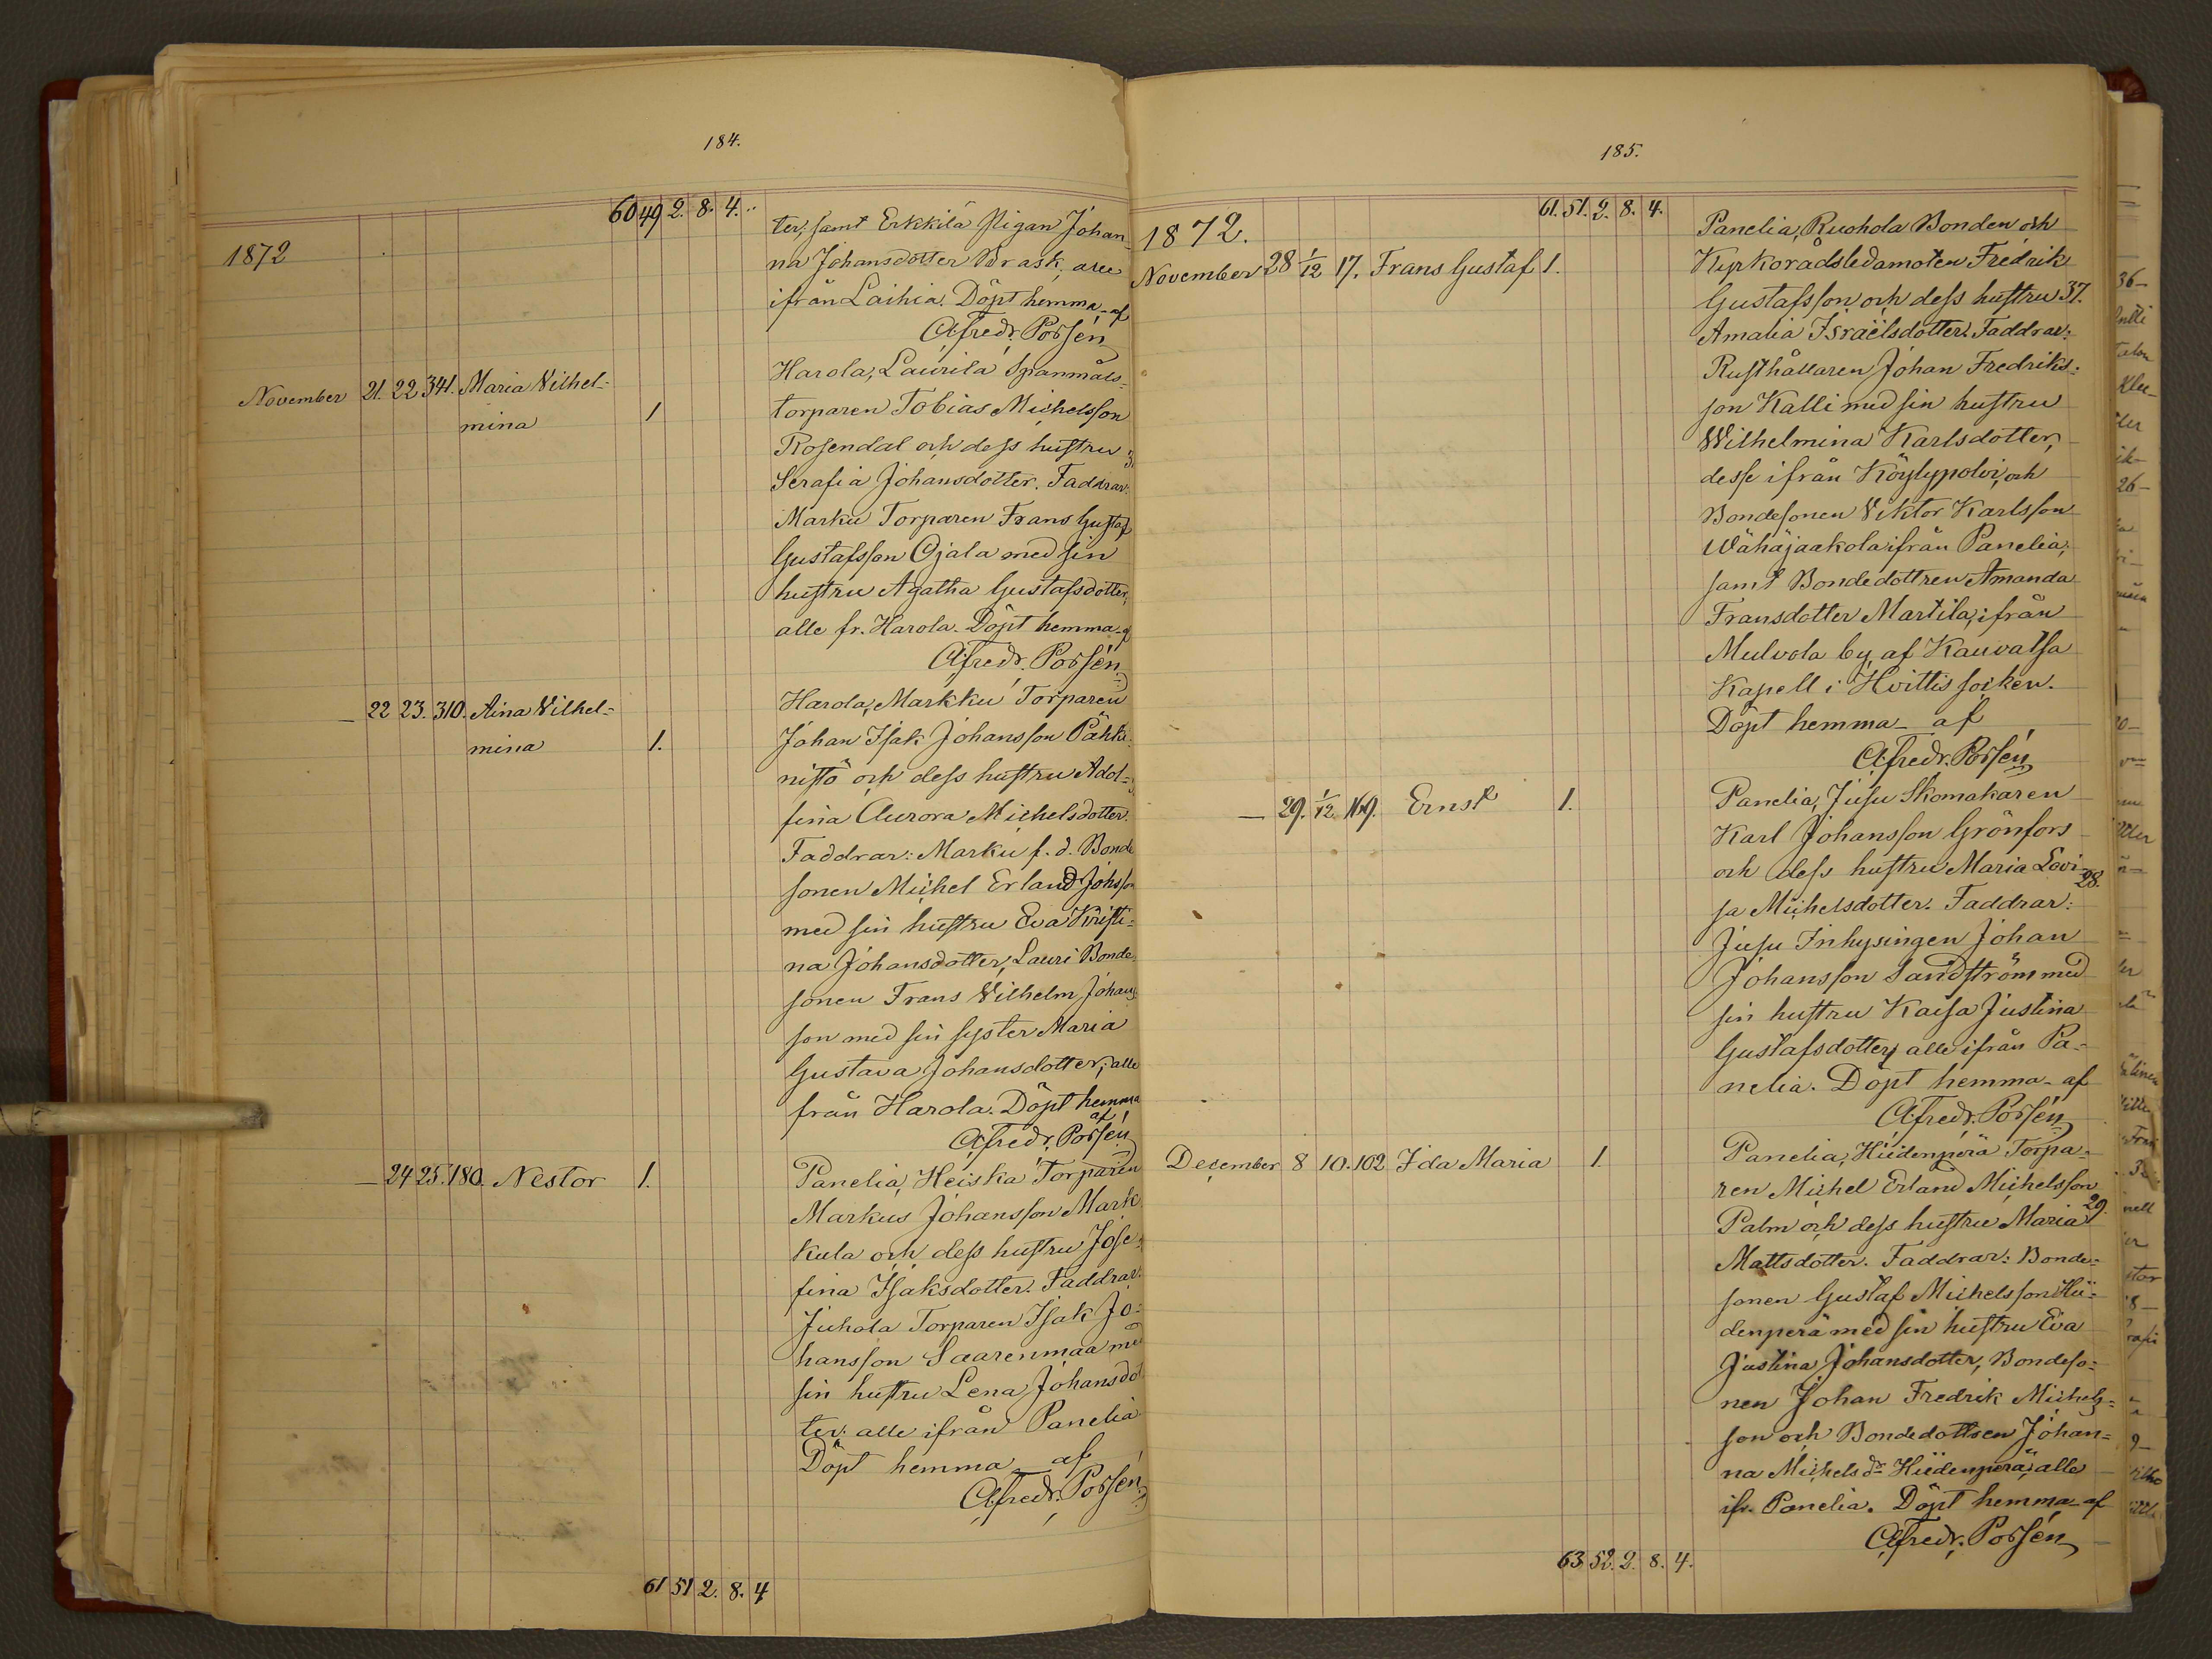 184.
60 49 2. 8. 4.
1872
ter; samt Erkkilä Pigan Johan-
na Johansdotter Brask, alla
ifrån Laihia. Döpt hemma af
Alfredr. Porsén
November 21. 22 341. Maria Vilhel-
mina 1
Harola, Laurila Spanmåls-
torparen Tobias Michelsson
Rosendal och dess hustru
Serafia Johansdotter. Faddrar:
Marku Torparen Frans Gustaf
Gustafsson Ojala med sin
hustru Agatha Gustafsdotter,
alle fr. Harola. Döpt hemma af
Alfredr. Porsén
— 22 23. 310. Aina Vilhel-
mina 1.
Harola, Markku Torparen
Johan Isak Johansson Pähki-
nistö och dess hustru Adol-
fina Aurora Michelsdotter.
Faddrar: Marku f. d. Bonde
sonen Michel Erland Johsson
med sin hustru Eva Kristi-
na Johansdotter, Lauri Bonde-
sonen Frans Vilhelm Johans-
son med sin syster Maria
Gustava Johansdotter; alle
från Harola. Döpt hemma
af
Alfredr. Porsén
— 24 25. 180. Nestor 1.
Panelia, Heiska Torparen
Markus Johansson Mark
kula och dess hustru Jose-
fina Isaksdotter. Faddrar:
Juhola Torparen Isak Jo-
hansson Saarenmaa med
sin hustru Lena Johansdot
ter: alle ifrån Panelia
Döpt hemma af
Alfredr. Porsén
61 51 2. 8. 4
185.
61. 51. 2. 8. 4.
1872.
November 28 1/12 17. Frans Gustaf 1.
Panelia, Ruohola Bonden och
Kyrkorådsledamoten Fredrik
Gustafsson och dess hustru 37.
Amalia Israëlsdotter. Faddrar:
Rusthållaren Johan Fredriks-
son Kalli med sin hustru
Wilhelmina Karlsdotter,
desse ifrån Köylypolvi, och
Bondesonen Viktor Karlsson
Wähäjaakola ifrån Panelia;
samt Bondedottren Amanda
Fransdotter Martila, ifrån
Mulvola by, af Kauvatsa
Kapell i Hvittis socken.
Döpt hemma af
Alfredr. Porsén
— 29. 1/12 169. Ernst 1.
Panelia, Jusu Skomakaren
Karl Johansson Grönfors
och dess hustru Maria Lovi- 28.
sa Michelsdotter. Faddrar:
Jusu Inhysingen Johan
Johansson Sandström med
sin hustru Kaisa Justina
Gustafsdotter, alle ifrån Pa-
nelia. Döpt hemma af
Alfredr. Porsén
December 8 10. 102 Ida Maria 1
Panelia, Hiidenperä Torpa-
ren Michel Erland Michelsson
Palm och dess hustru Maria 29.
Mattsdotter. Faddrar: Bonde-
sonen Gustaf Michelsson Hii-
denperä med sin hustru Eva
Justina Johansdotter, Bondeso-
nen Johan Fredrik Michels-
son och Bondedottren Johan-
na Michelsdr Hiidenperä, alle
ifr. Panelia. Döpt hemma af
Alfredr. Porsén
63 52. 2. 8. 4.